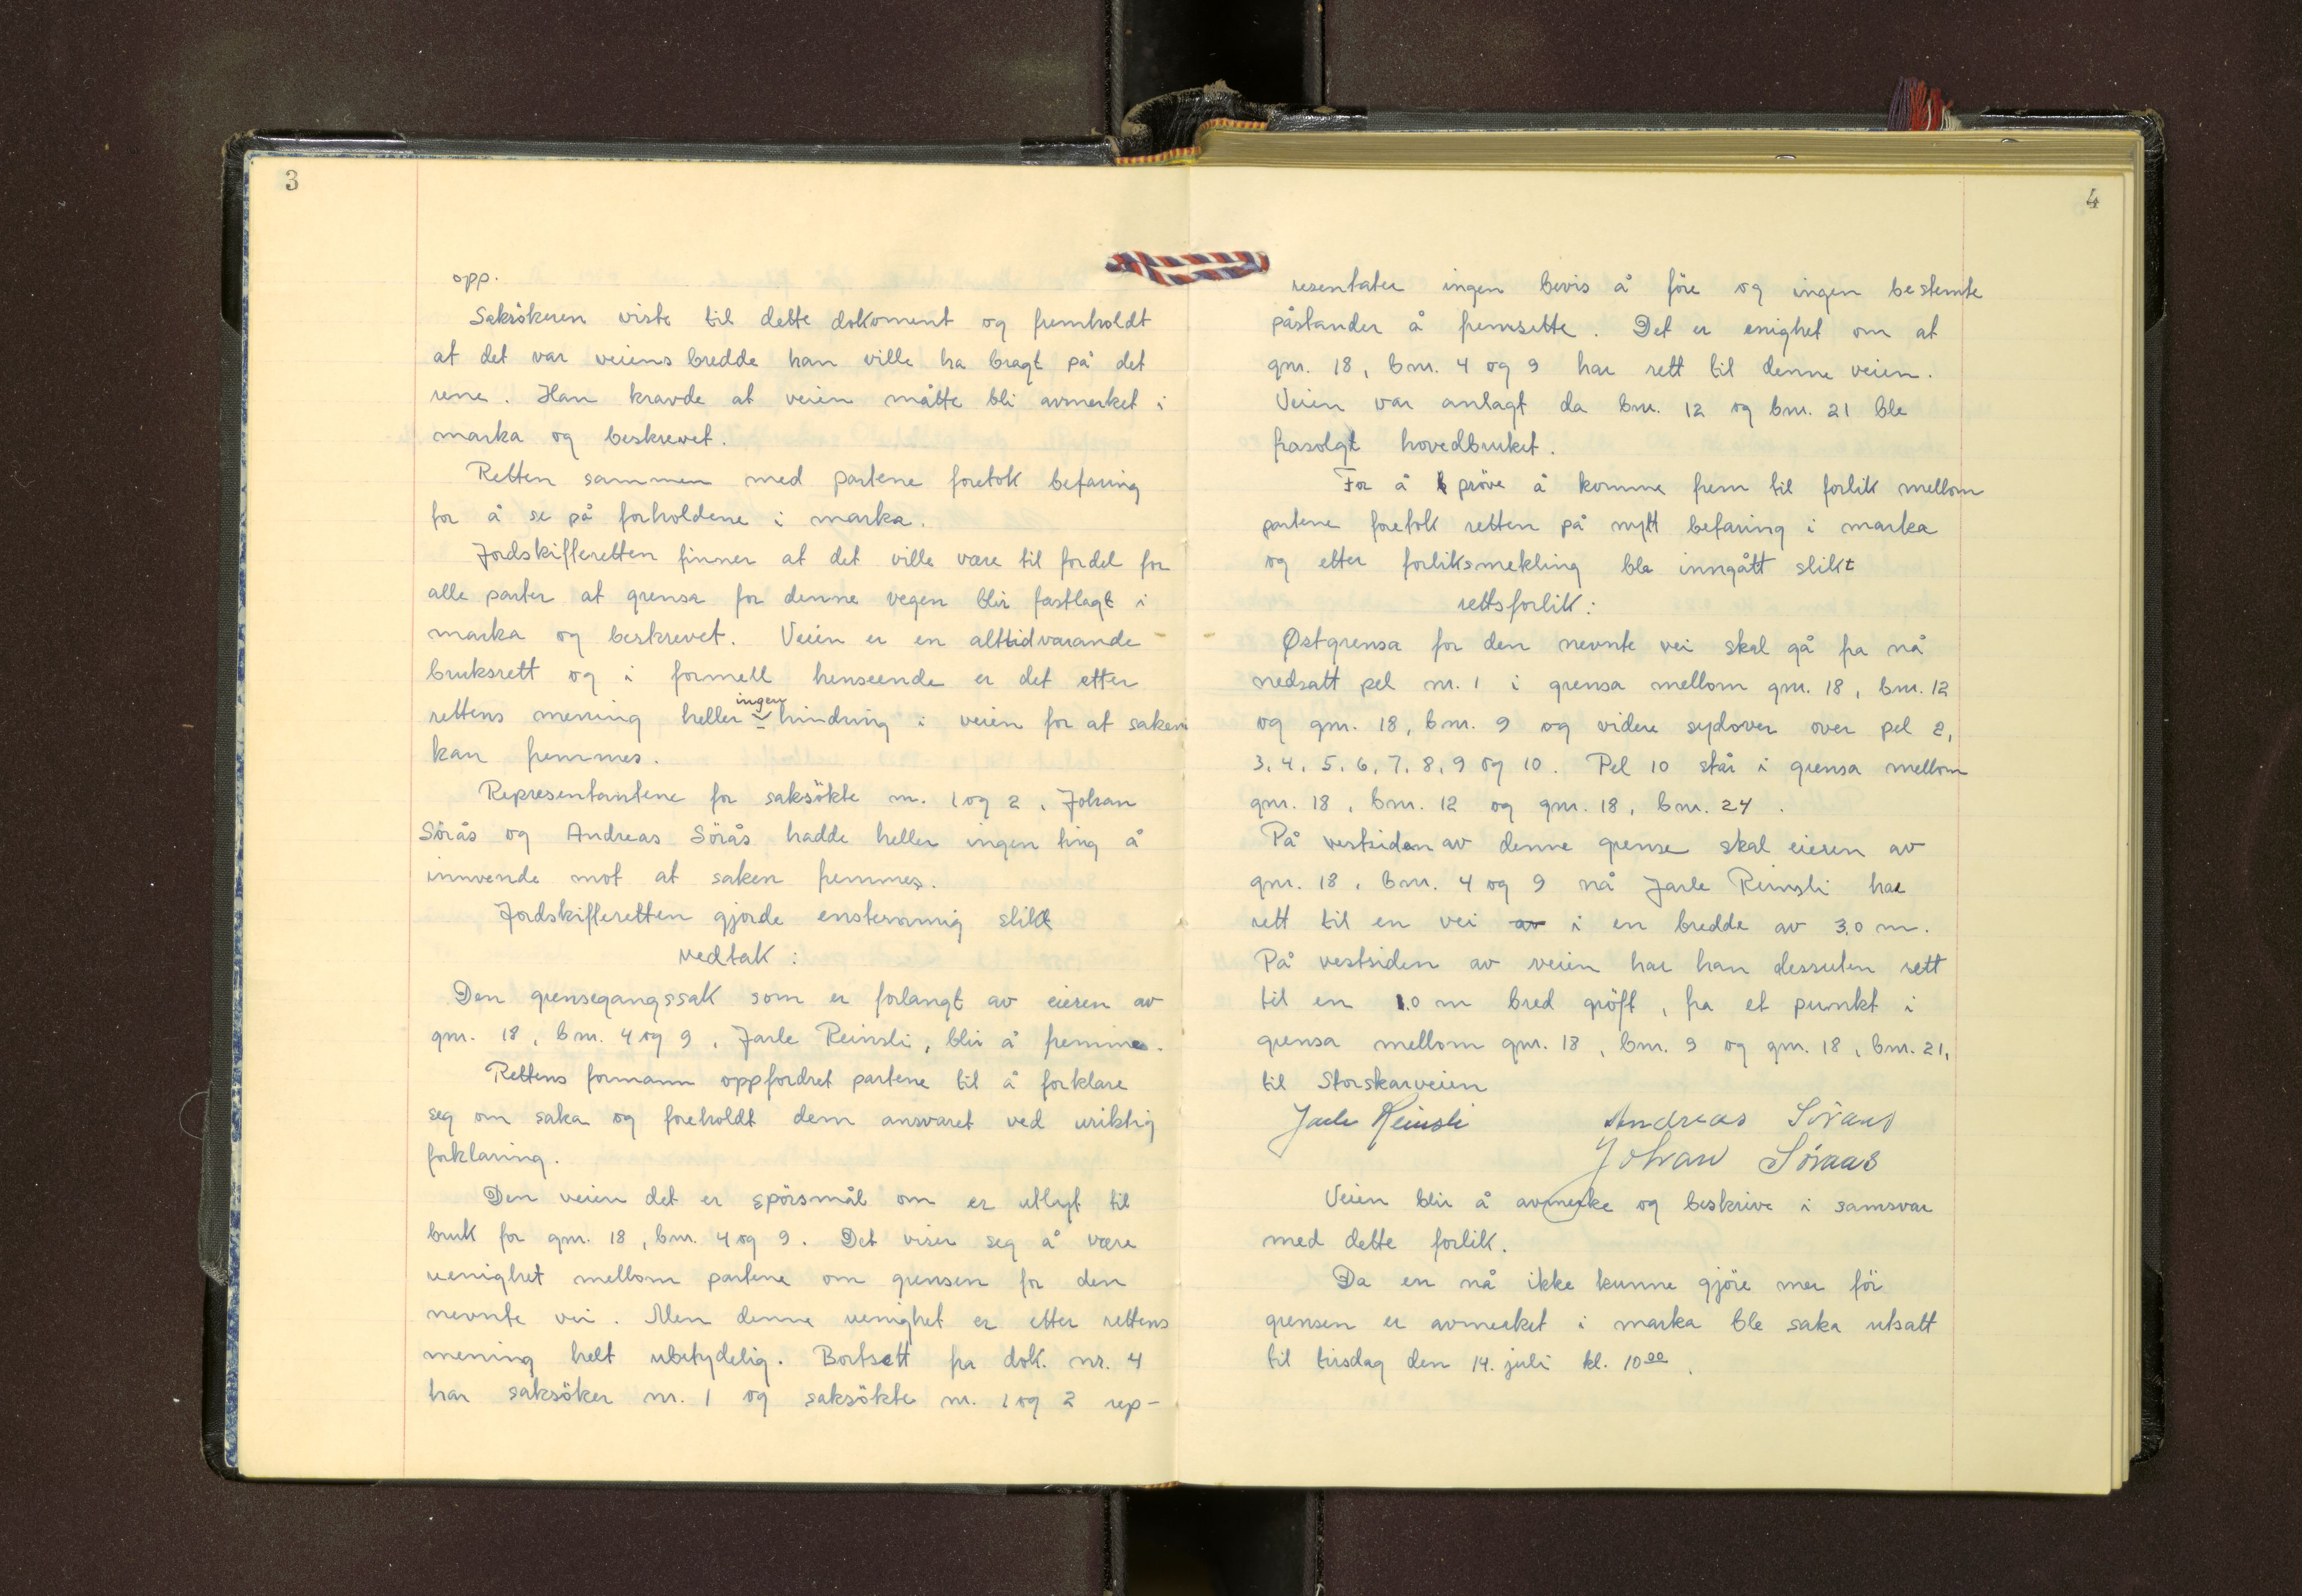 3
opp.
Saksökeren viste til dette dokoment og fremholdt
at det var veiens bredde han ville ha bragt på det
rene. Han kravde at veien måtte bli avmerket i
marka og beskrevet.
Retten sammen med partene foretok befaring
for å se på forholdene i marka.
Jordskifteretten finner at det ville være til fordel for
alle parter at grensa for denne vegen blir fastlagt i
marka og beskrevet. Veien er en alttidvarande
bruksrett og i formell henseende er det etter
rettens mening heller ingen hindring i veien for at saken
kan fremmes.
Representantene for saksökte nr. 1 og 2, Johan
Sörås og Andreas Sörås hadde heller ingen ting å
innvende mot at saken fremmes.
Jordskifteretten gjorde enstemmig slikt
vedtak:
Den grensegangssak som er forlangt av eieren av
gnr. 18, bnr. 4 og 9, Jarle Reinsli, blir å fremme.
Rettens formann oppfordret partene til å forklare
seg om saka og foreholdt dem ansvaret ved uriktig
forklaring.
Den veien det er spörsmål om er utlagt til
bruk for gnr. 18, bnr. 4 og 9. Det viser seg å være
uenighet mellom partene om grensen for den
nevnte vei. Men denne uenighet er etter rettens
mening helt ubetydelig. Bortsett fra dok. nr. 4
har saksöker nr. 1 og saksökte nr. 1 og 2 rep-
4
resentater ingen bevis å före og ingen bestemte
påstander å fremsette. Det er enighet om at
gnr. 18, bnr. 4 og 9 har rett til denne veien.
Veien var anlagt da bnr. 12 og bnr. 21 ble
frasolgt hovedbruket.
For å pröve å komme frem til forlik mellom
partene foretok retten på nytt befaring i marka
og etter forliksmekling ble inngått slikt
rettsforlik:
Østgrensa for den nevnte vei skal gå fra nå
nedsatt pel nr. 1 i grensa mellom gnr. 18, bnr. 12
og gnr. 18, bnr. 9 og videre sydover over pel 2,
3, 4, 5, 6, 7, 8, 9 og 10. Pel 10 står i grensa mellom
gnr. 18, bnr. 12 og gnr. 18, bnr. 24.
På vestsiden av denne grense skal eieren av
gnr. 18, bnr. 4 og 9 nå Jarle Reinsli har
rett til en vei av i en bredde av 3.0 m.
På vestsiden av veien har han dessuten rett
til en 1.0 m bred gröft, fra et punkt i
grensa mellom gnr. 18, bnr. 9 og gnr. 18, bnr. 21,
til Storskarveien
Jarle Reinsli Andreas Söraas
Johan Søraas
Veien blir å avmerke og beskrive i samsvar
med dette forlik.
Da en nå ikke kunne gjöre mer för
grensen er avmerket i marka ble saka utsatt
til tirsdag den 14. juli kl. 10 00.